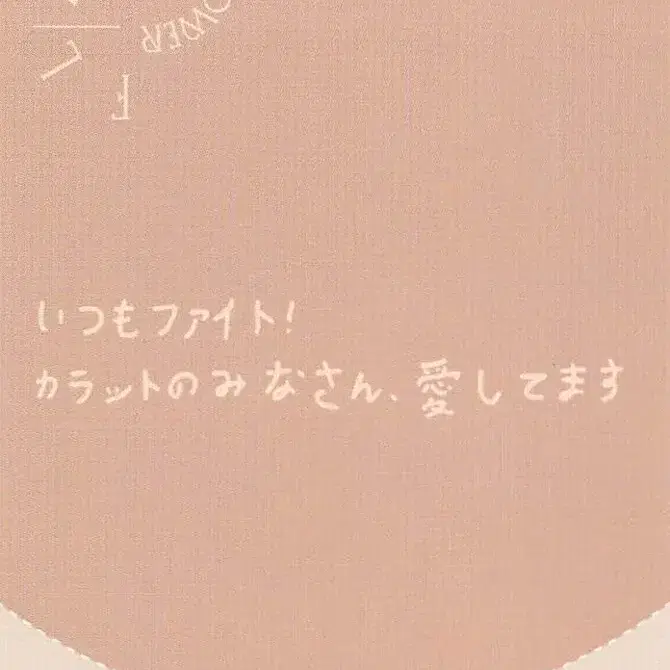 OWER
いつもファイト!
カラットのみなさん、愛してます